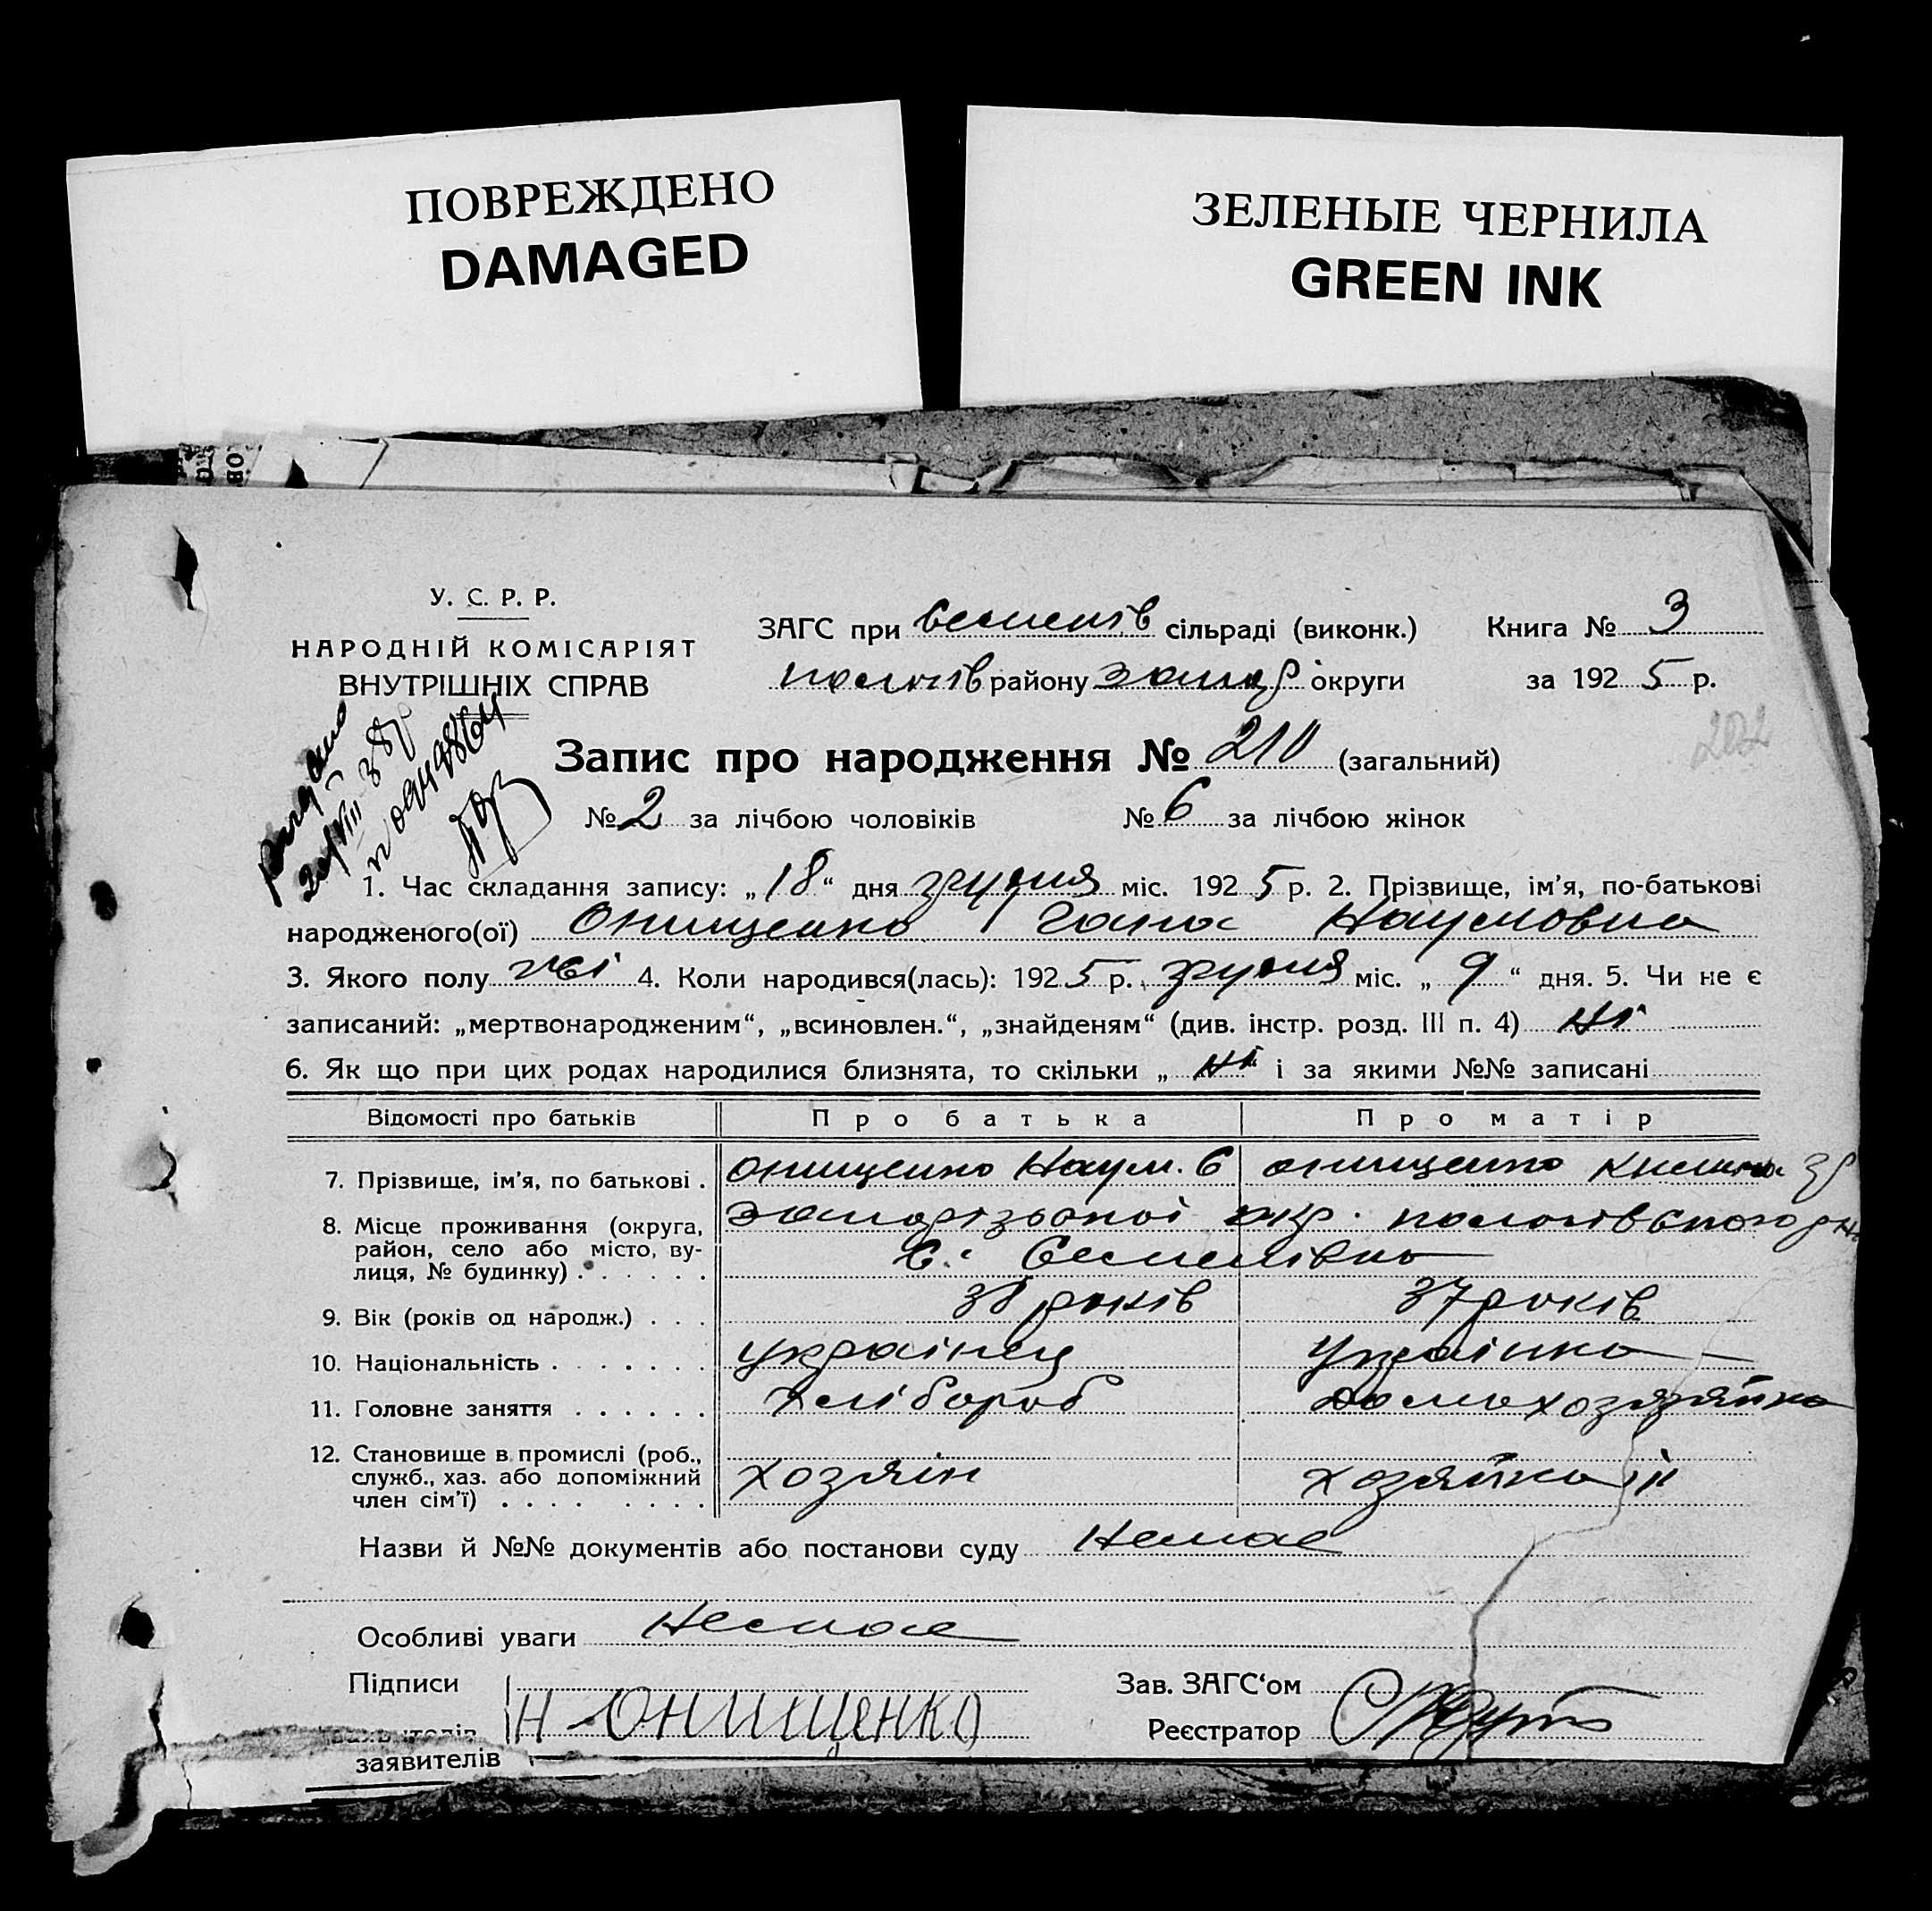 ПОВРЕЖДЕНО
DAMAGED
ЗЕЛЕНЫЕ ЧЕРНИЛА
GREEN INK
У. С. Р. Р.
НАРОДНІЙ КОМІСАРІЯТ
ВНУТРІШНІХ СПРАВ
ЗАГС при Семенів сільраді (виконк.) Книга № 3
пологів району запор округи за 1925 р.
202
Запис про народження № 210 (загальний)
№ 2 за лічбою чоловіків № 6 за лічбою жінок
1. Час складання запису: „18“ дня грудня міс. 1925 р. 2. Прізвище, ім'я, по-батькові
народженого(ої) Онищенко Гана Наумовна
3. Якого полу жі 4. Коли народився(лась): 1925 р. грудня міс. „9“ дня. 5. Чи не є
записаний: „мертвонародженим“, „всиновлен.“, „знайденям“ (див. інстр. розд. III п. 4) Ні
6. Як що при цих родах народилися близнята, то скільки „ні“ і за якими №№ записані
Відомості про батьків Про батька Про матір
7. Прізвище, ім'я, по батькові . Онищенко Наум. Є онищенко Килина
8. Місце проживання (округа, Запорізької окр. пологівського рн.
район, село або місто, ву-
лиця, № будинку) . . . . . . с. Семенівка
9. Вік (років од народж.) . . . 38 років 37 років
10. Національність . . . . . . . українец Українка
11. Головне заняття . . . . . . хлібороб домохозяйка
12. Становище в промислі (роб.,
служб., хаз. або допоміжний хозяїн хозяйка
член сім'ї) . . . . . . . .
Назви й №№ документів або постанови суду Немае
Особливі уваги Немае
Підписи Зав. ЗАГС'ом
Н Онищенко Реєстратор
заявителів